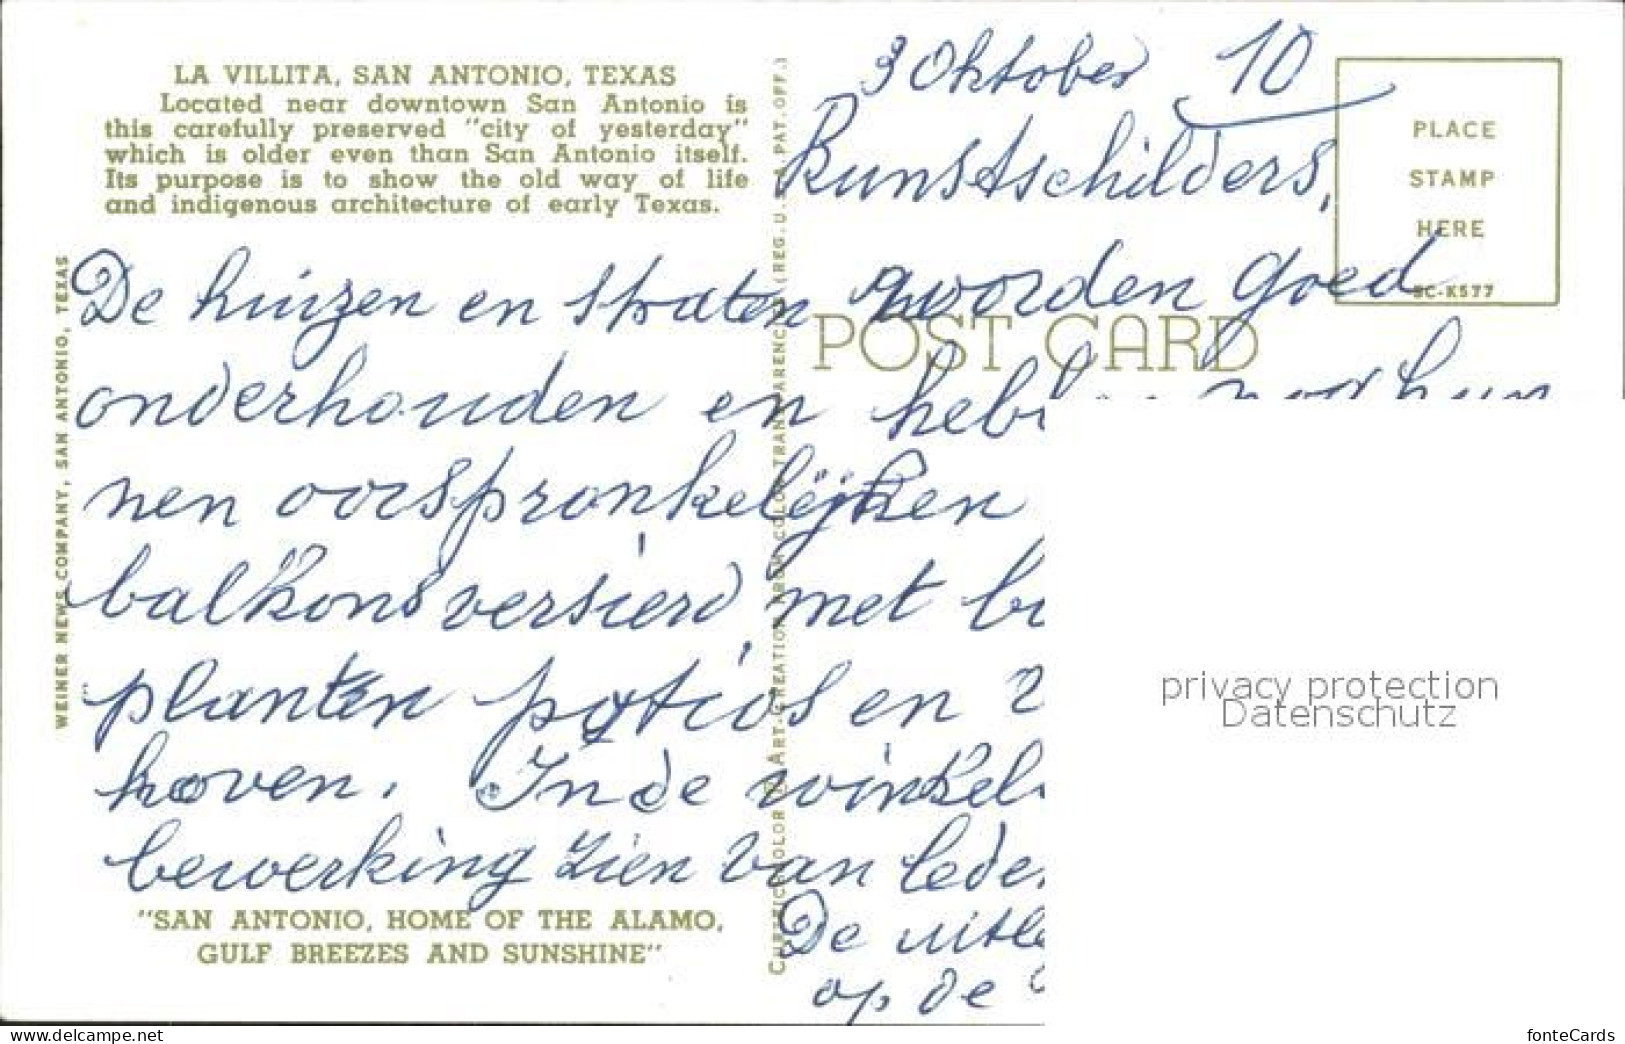 LA VILLITA, SAN ANTONIO, TEXAS
Located near downtown San Antonio is
this carefully preserved "city of yesterday"
which is older even than San Antonio itself.
Its purpose is to show the old way of life
and indigenous architecture of early Texas.
3 Oktober 10
Kunstschilders,
PLACE
STAMP
HERE
SC-K577
POST CARD
De huizen en straten worden goed
onderhouden en
nen oorspronkelijken
balkons versierd, met
planten patios en
hoven. In de
bewerking zien van
De
op de
"SAN ANTONIO, HOME OF THE ALAMO,
GULF BREEZES AND SUNSHINE"
WEINER NEWS COMPANY, SAN ANTONIO, TEXAS
privacy protection
Datenschutz
www.delcampe.net
fonteCards